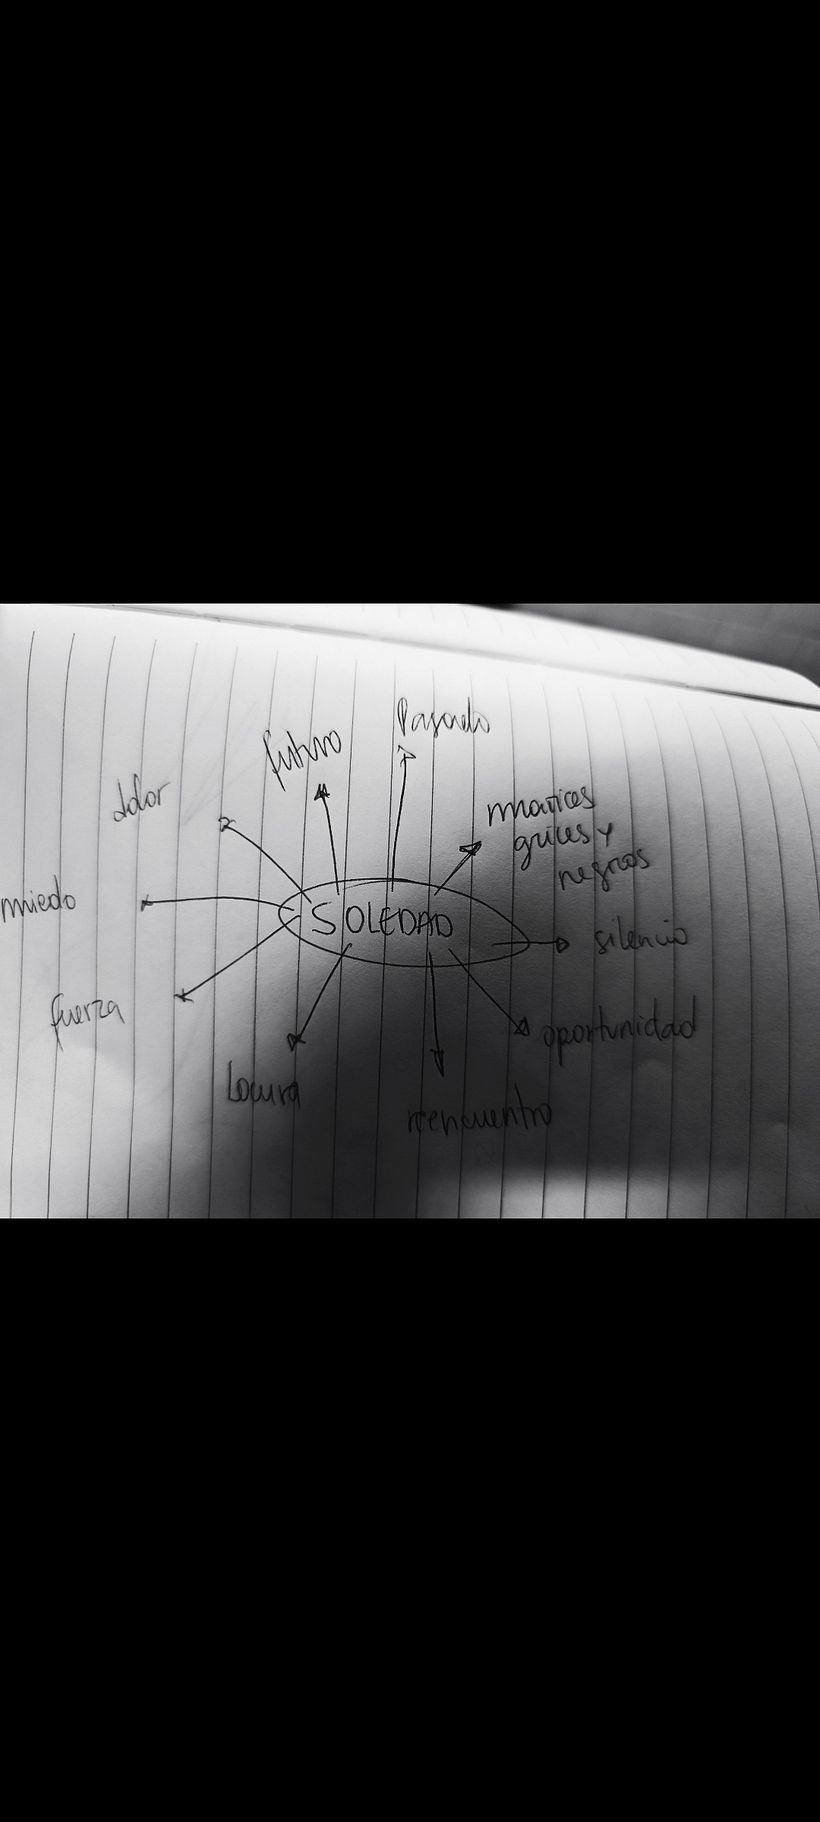 Pasado
futuro
dolor
matices
grices y
negros
miedo
SOLEDAD
silencio
fuerza
oportunidad
Locura
reencuentro